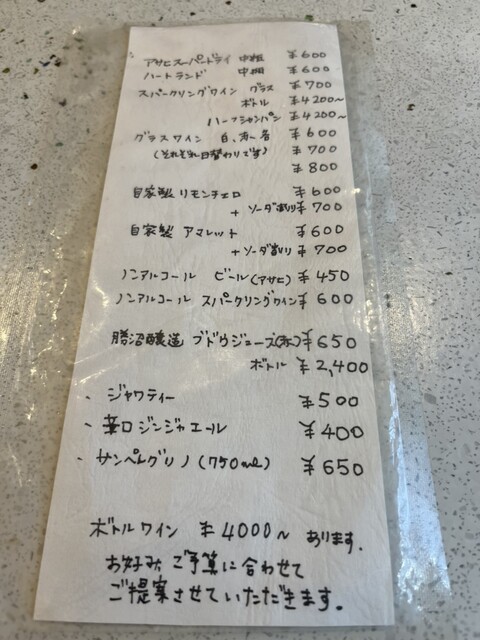 アサヒスーパードライ 中瓶 ¥600
ハートランド 中瓶 ¥600
スパークリングワイン グラス ¥700
ボトル ¥4200~
ハーフシャンパン ¥4200~
グラスワイン 白、赤 各 ¥600
(それぞれ日替わりです) ¥700
¥800
自家製 リモンチェロ ¥600
+ ソーダ割り ¥700
自家製 アマレット ¥600
+ ソーダ割り ¥700
ノンアルコール ビール(アサヒ) ¥450
ノンアルコール スパークリングワイン ¥600
勝沼醸造 ブドウジュース(赤) ¥650
ボトル ¥2,400
・ ジャワティー ¥500
・ 辛口ジンジャエール ¥400
・ サンペレグリノ (750ml) ¥650
ボトルワイン ¥4000~ あります.
お好み ご予算に合わせて
ご提案させていただきます.